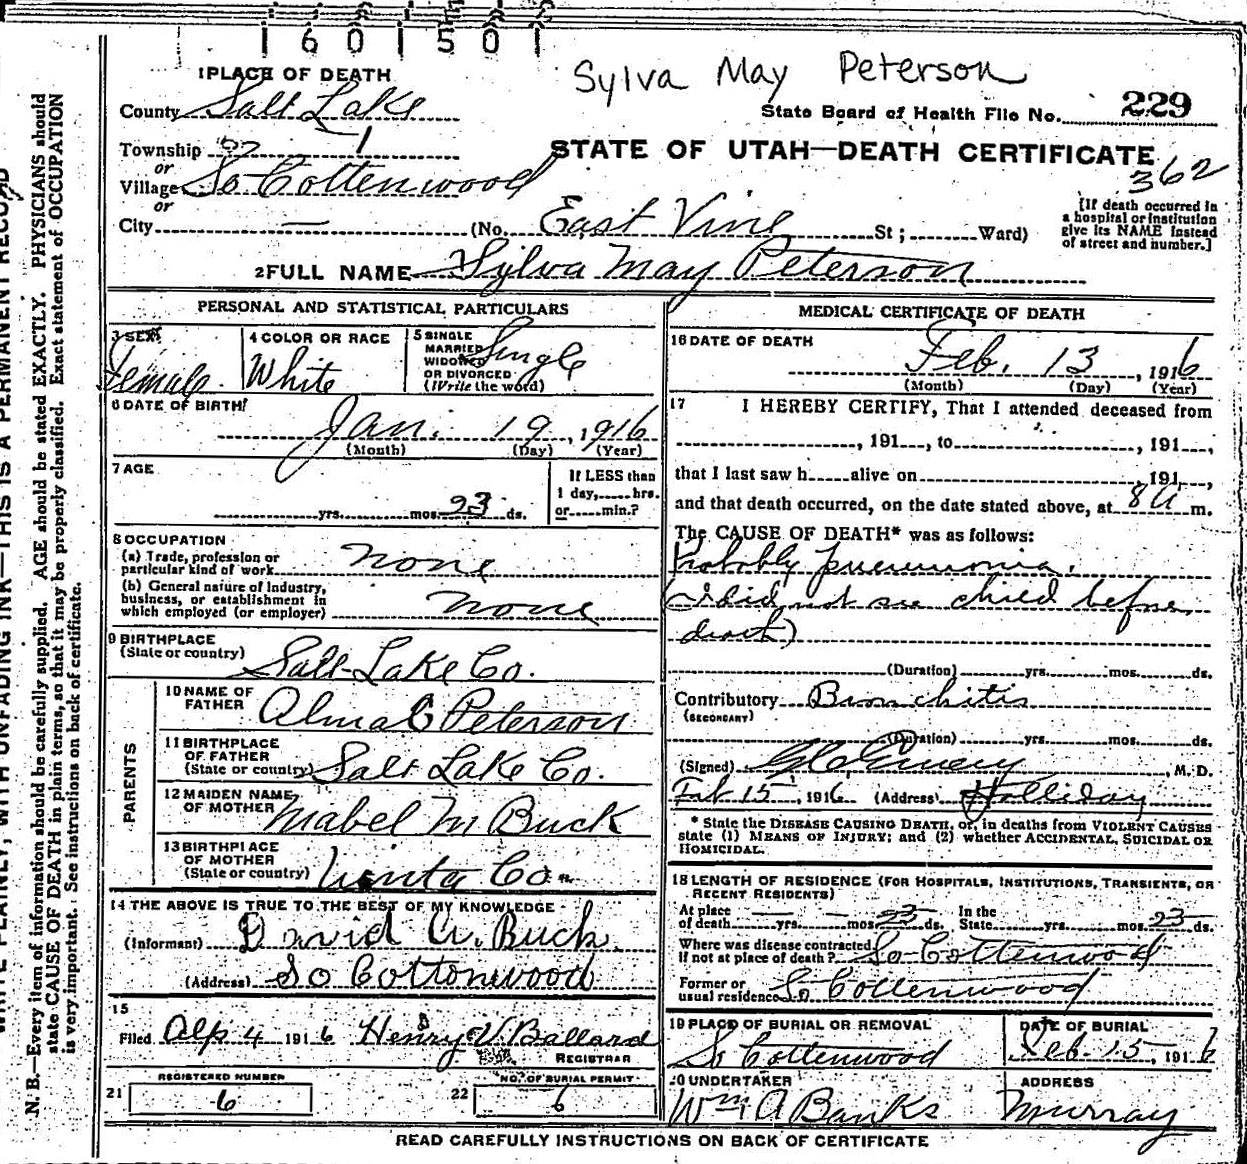 1601501
Sylva May Peterson
1 PLACE OF DEATH
County Salt Lake
State Board of Health File No. 229
Township
or
Village So Cottenwood
or
City — (No. East Vine St; Ward)
STATE OF UTAH—DEATH CERTIFICATE
362
[If death occurred in
a hospital or institution
give its NAME instead
of street and number.]
2 FULL NAME Sylva May Peterson
PERSONAL AND STATISTICAL PARTICULARS
3 SEX
Female
4 COLOR OR RACE
White
5 SINGLE
MARRIED
WIDOWED
OR DIVORCED
(Write the word)
Single
6 DATE OF BIRTH
Jan. 19, 1916
(Month) (Day) (Year)
7 AGE
yrs. mos. 23 ds.
If LESS than
1 day, hrs.
or min.?
8 OCCUPATION
(a) Trade, profession or
particular kind of work none
(b) General nature of Industry,
business, or establishment in
which employed (or employer) none
9 BIRTHPLACE
(State or country) Salt Lake Co.
PARENTS
10 NAME OF
FATHER Alma C Peterson
11 BIRTHPLACE
OF FATHER
(State or country) Salt Lake Co.
12 MAIDEN NAME
OF MOTHER Mabel M Buck
13 BIRTHPLACE
OF MOTHER
(State or country) Uinta Co.
14 THE ABOVE IS TRUE TO THE BEST OF MY KNOWLEDGE
(Informant) David A. Buck
(Address) So Cottonwood
15
Filed 4 1916 Henry V. Ballard
REGISTRAR
REGISTERED NUMBER
21 6
NO. OF BURIAL PERMIT
22 6
MEDICAL CERTIFICATE OF DEATH
16 DATE OF DEATH
Feb. 13, 1916
(Month) (Day) (Year)
17 I HEREBY CERTIFY, That I attended deceased from
, 191 , to , 191 ,
that I last saw h alive on 191 ,
and that death occurred, on the date stated above, at 8 a m.
The CAUSE OF DEATH* was as follows:
Probably pneumonia.
(I did not see child before
death)
(Duration) yrs. mos. ds.
Contributory Bronchitis
(SECONDARY)
(Duration) yrs. mos. ds.
(Signed) , M. D.
Feb 15, 1916 (Address) Holliday
* State the DISEASE CAUSING DEATH, or, in deaths from VIOLENT CAUSES
state (1) MEANS OF INJURY; and (2) whether ACCIDENTAL, SUICIDAL OR
HOMICIDAL.
18 LENGTH OF RESIDENCE (FOR HOSPITALS, INSTITUTIONS, TRANSIENTS, OR
RECENT RESIDENTS)
At place
of death — yrs. — mos. 23 ds.
In the
State yrs. mos. 23 ds.
Where was disease contracted
If not at place of death? So Cottenwood
Former or
usual residence So Cottenwood
19 PLACE OF BURIAL OR REMOVAL
So Cottenwood
DATE OF BURIAL
Feb. 15, 1916
20 UNDERTAKER
Wm A Banks
ADDRESS
Murray
READ CAREFULLY INSTRUCTIONS ON BACK OF CERTIFICATE
WRITE PLAINLY, WITH UNFADING INK—THIS IS A PERMANENT RECORD
N. B.—Every item of information should be carefully supplied. AGE should be stated EXACTLY. PHYSICIANS should
state CAUSE OF DEATH in plain terms, so that it may be properly classified. Exact statement of OCCUPATION
is very important. See instructions on back of certificate.